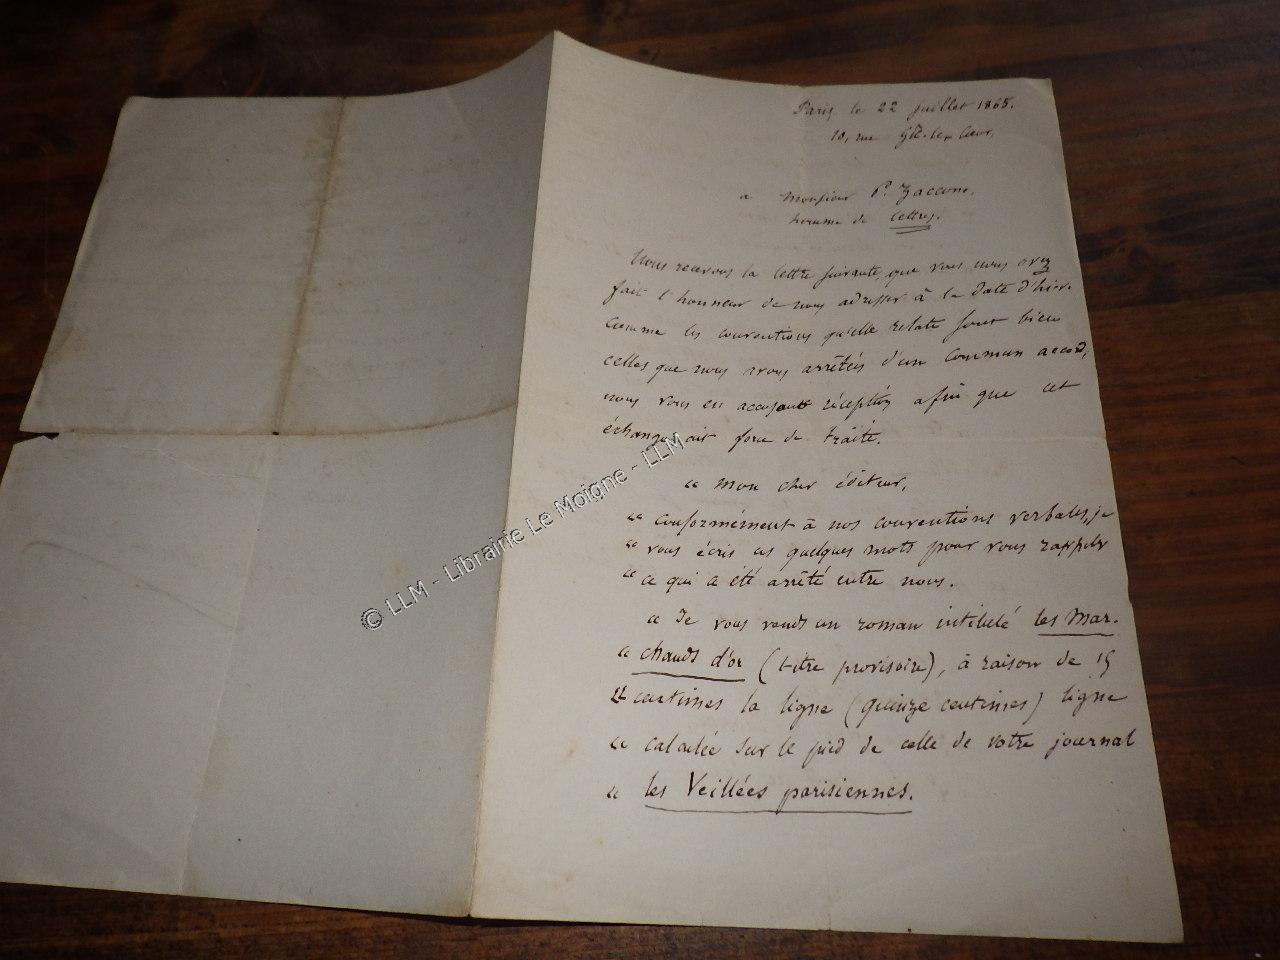 Paris, le 22 juillet 1865.
10, rue Gît-le-Cœur,
a Monsieur P. Zaccone,
homme de lettres.
Nous recevons la lettre suivante, que vous nous avez
fait l'honneur de nous adresser à la date d'hier.
Comme les conventions qu'elle relate sont bien
celles que nous avons arrêtées d'un commun accord,
nous vous en accusons réception afin que cet
échange ait force de traité.
" Mon cher éditeur,
" conformément à nos conventions verbales, je
" vous écris ces quelques mots pour vous rappeler
" ce qui a été arrêté entre nous.
" Je vous vends un roman intitulé les Mar-
" chands d'or (titre provisoire), à raison de 15
" centimes la ligne (quinze centimes) ligne
" calculée sur le pied de celle de votre journal
" les Veillées parisiennes.
© LLM - Librairie Le Moigne - LLM